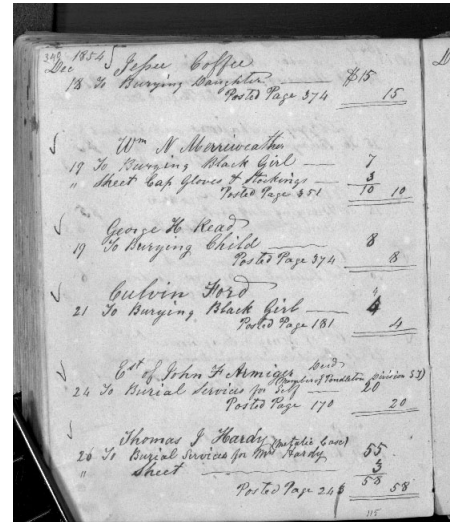 348
Dec 1854 Jesse Coffee
18 To Burying Daughter $15
Posted Page 374 15
Wm N Merriweather
19 To Burying Black Girl 7
" Sheet Cap Gloves & Stockings 3
Posted Page 351 10 10
George H. Read
19 To Burying Child 8
Posted Page 374 8
Culvin Ford
21 To Burying Black Girl 4
Posted Page 181 4
Est of John F Armiger Decd
(Member of Pendleton Division 53)
24 To Burial Services for Self 20
Posted Page 170 20
Thomas J Hardy (Metalic Case)
26 To Burial Services for Mrs Hardy 55
" Sheet 3
58
Posted Page 245 58
115